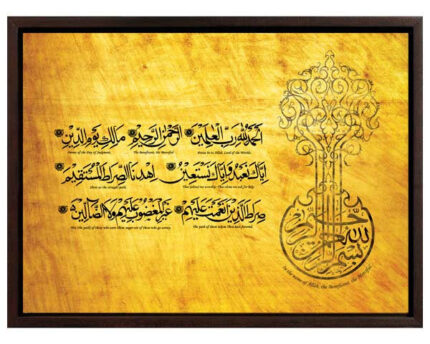 بسم الله الرحمن الرحيم
In the name of Allah, the Beneficent, the Merciful.
الحمد لله رب العلمين الرحمن الرحيم ملك يوم الدين
Praise be to Allah, Lord of the Worlds, The Beneficent, the Merciful. Owner of the Day of Judgment,
إياك نعبد وإياك نستعين اهدنا الصراط المستقيم
Thee (alone) we worship; Thee (alone) we ask for help. Show us the straight path,
صراط الذين أنعمت عليهم غير المغضوب عليهم ولا الضالين
The path of those whom Thou hast favored; Not (the path) of those who earn Thine anger nor of those who go astray.